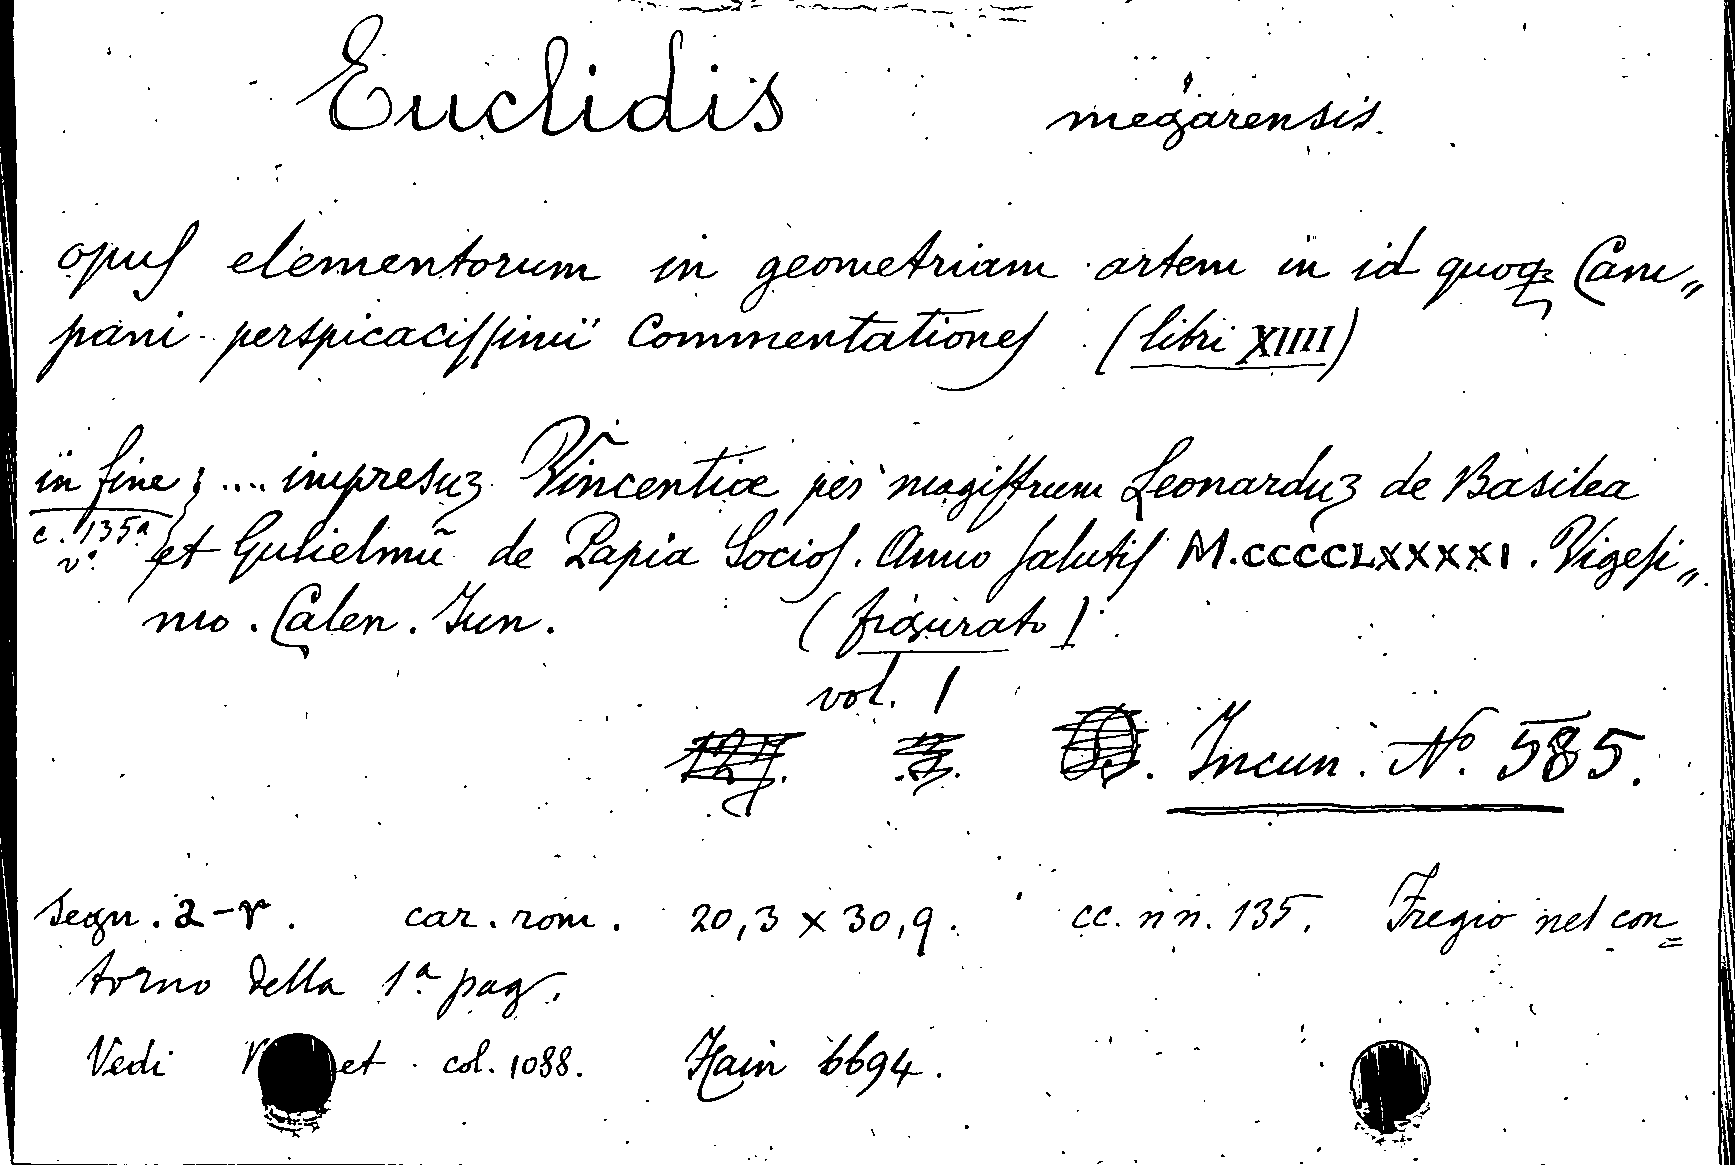 Euclidis megarensis
opuſ elementorum in geometriam artem in id quoqꝫ Cam„
pani perspicaciſſimū Commentationeſ (libri XIIII)
in fine ; .... impresuz Vincentiæ per magiſtrum Leonarduz de Basilea
c. 135ª vº et Gulielmū de Papia Socioſ. Anno ſalutiſ M.CCCCLXXXXI. Vigeſi„
mo. Calen. Iun. (figurato)
vol. 1
Incun. Nº. 585.
segn. a-r. car. rom. 20,3 x 30,9. cc. nn. 135. Fregio nel con=
torno della 1ª pag.
Vedi et col. 1088. Hain 6694.